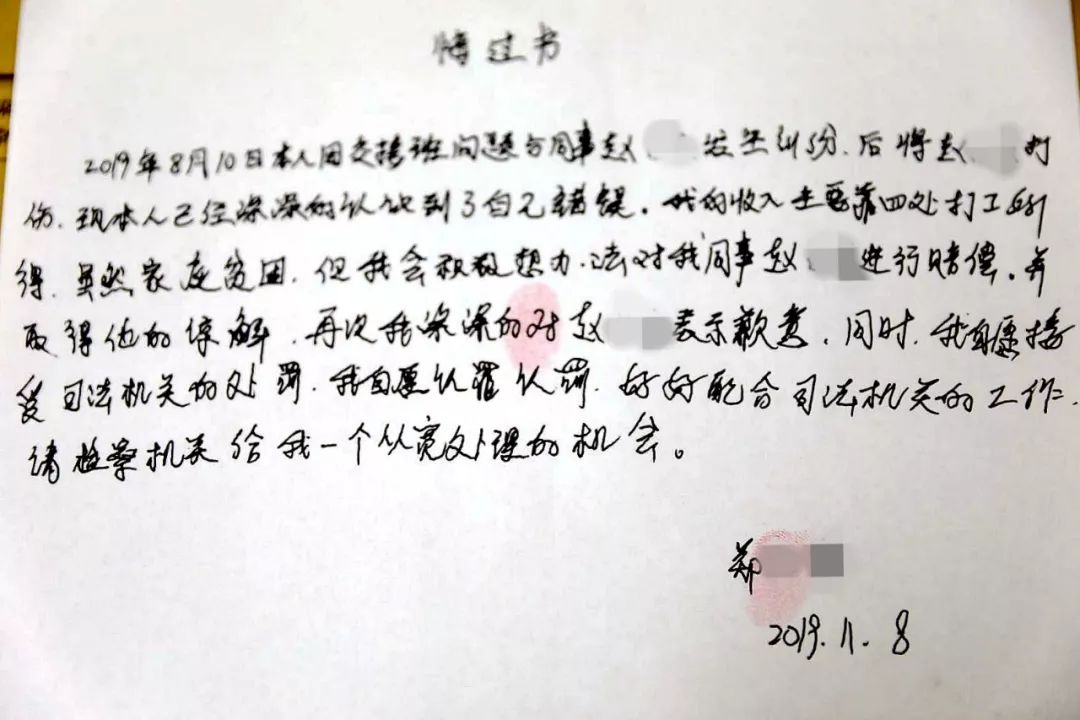 悔过书
2019年8月10日本人因交接班问题与同事赵 发生纠纷、后将赵 打
伤、现本人已经深深的认识到了自己错误。我的收入主要靠四处打工所
得、虽然家庭贫困、但我会积极想办法对我同事赵 进行赔偿。并
取得他的谅解、再次我深深的对赵 表示歉意、同时、我自愿接
受司法机关的处罚、我自愿认罪认罚、好好配合司法机关的工作、
请检察机关给我一个从宽处理的机会。
郑
2019.11.8